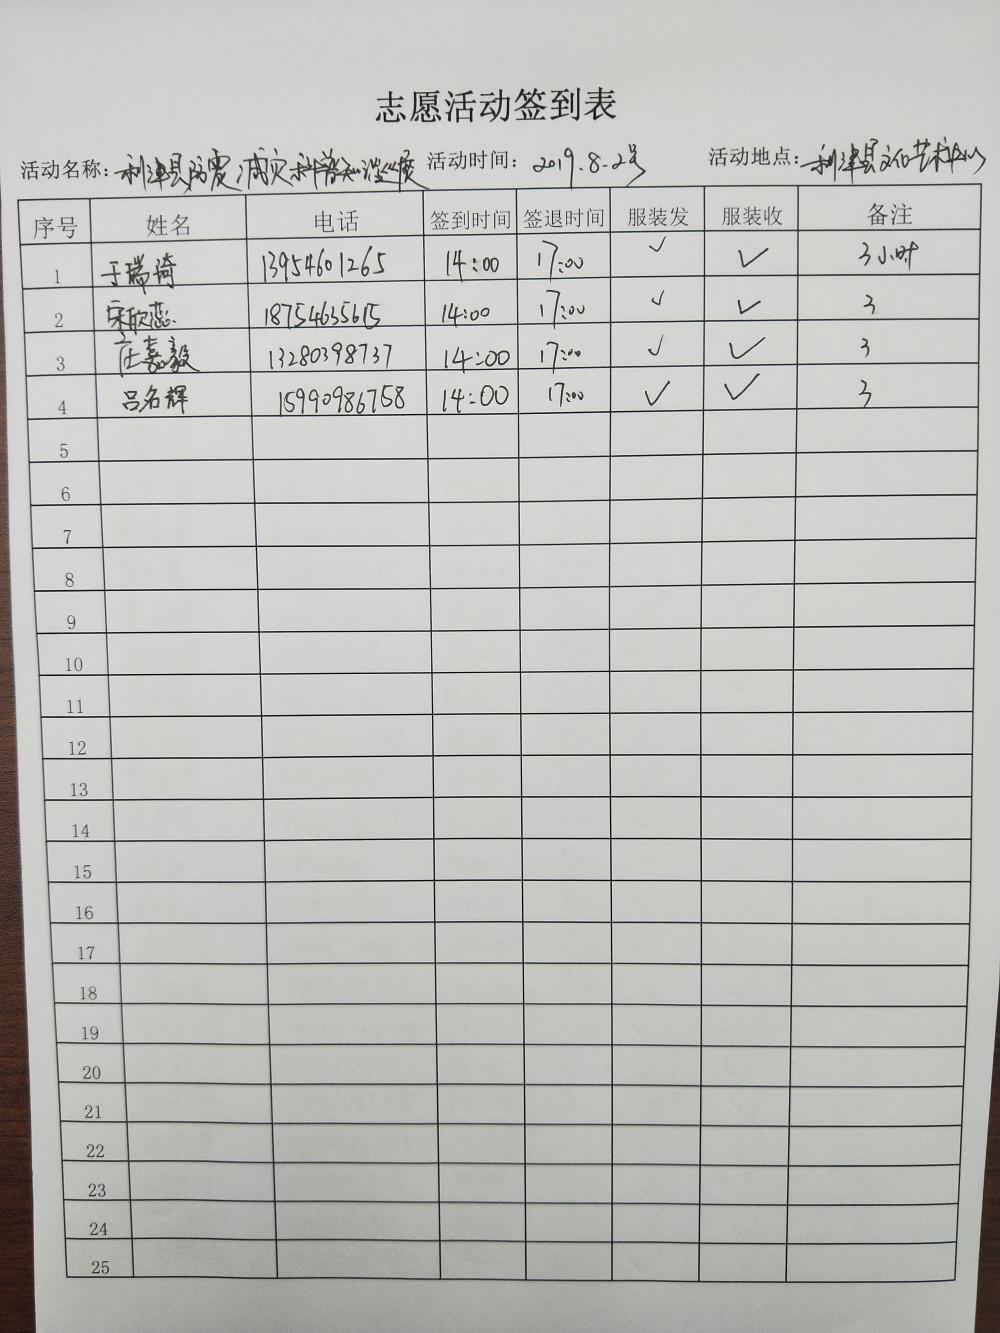 志愿活动签到表
活动名称：利津县防震减灾科普知识巡展 活动时间：2019.8.2号 活动地点：利津县文化艺术中心
序号 姓名 电话 签到时间 签退时间 服装发 服装收 备注
1 于瑞琦 13954601265 14:00 17:00 ✓ ✓ 3小时
2 宋欣蕊 18754635615 14:00 17:00 ✓ ✓ 3
3 庄嘉毅 13280398737 14:00 17:00 ✓ ✓ 3
4 吕名辉 15990986758 14:00 17:00 ✓ ✓ 3
5
6
7
8
9
10
11
12
13
14
15
16
17
18
19
20
21
22
23
24
25